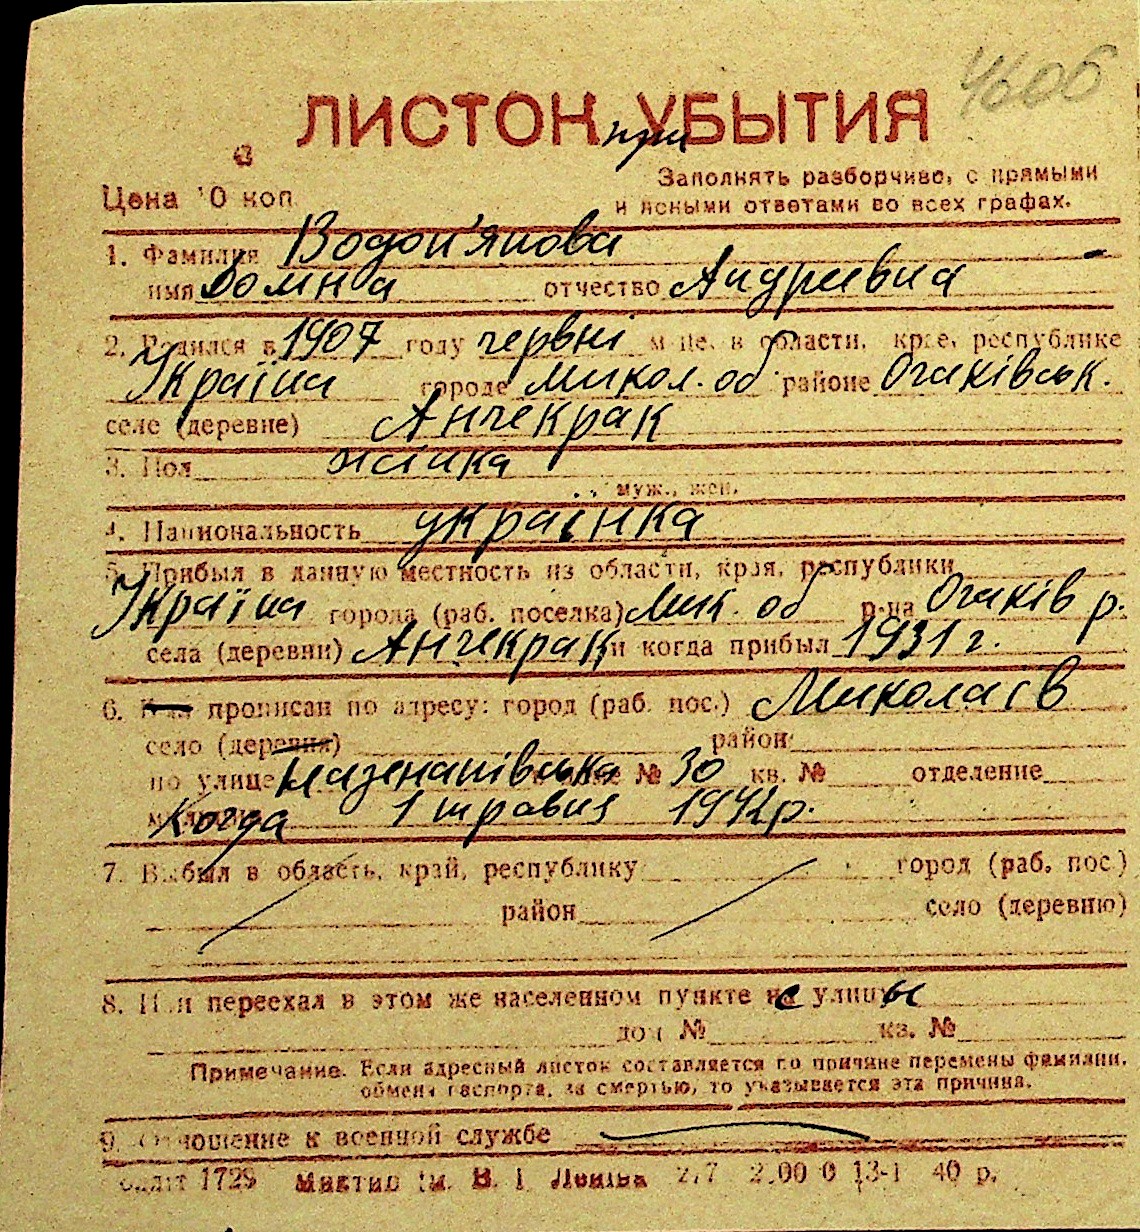 4606
ЛИСТОК УБЫТИЯ
при
Цена 10 коп.
Заполнять разборчиво, с прямыми
и ясными ответами во всех графах.
1. Фамилия Водоп'янова
имя Домна отчество Андріевна
2. Родился в 1907 году червні м-це, в области, крае, республике
Україна городе Микол. об районе Очаківськ.
селе (деревне) Анчекрак
3. Пол жінка
муж., жен.
4. Национальность українка
5. Прибыл в данную местность из области, края, республики
Україна города (раб. поселка) Мик. об р-на Очаків р.
села (деревни) Анчекрак и когда прибыл 1931 г.
6. прописан по адресу: город (раб. пос.) Миколаїв
село (деревня) район
по улице № 30 кв. № отделение
Когда 1 травня 1942 р.
7. Выбыл в область, край, республику город (раб. пос.)
район село (деревню)
8. Или переехал в этом же населенном пункте с улицы
дом № кв. №
Примечание. Если адресный листок составляется по причине перемены фамилии,
обмена паспорта, за смертью, то указывается эта причина.
9. Отношение к военной службе
1729 ім. В. І. Леніна 2.7 2.00 0 13-1 40 р.